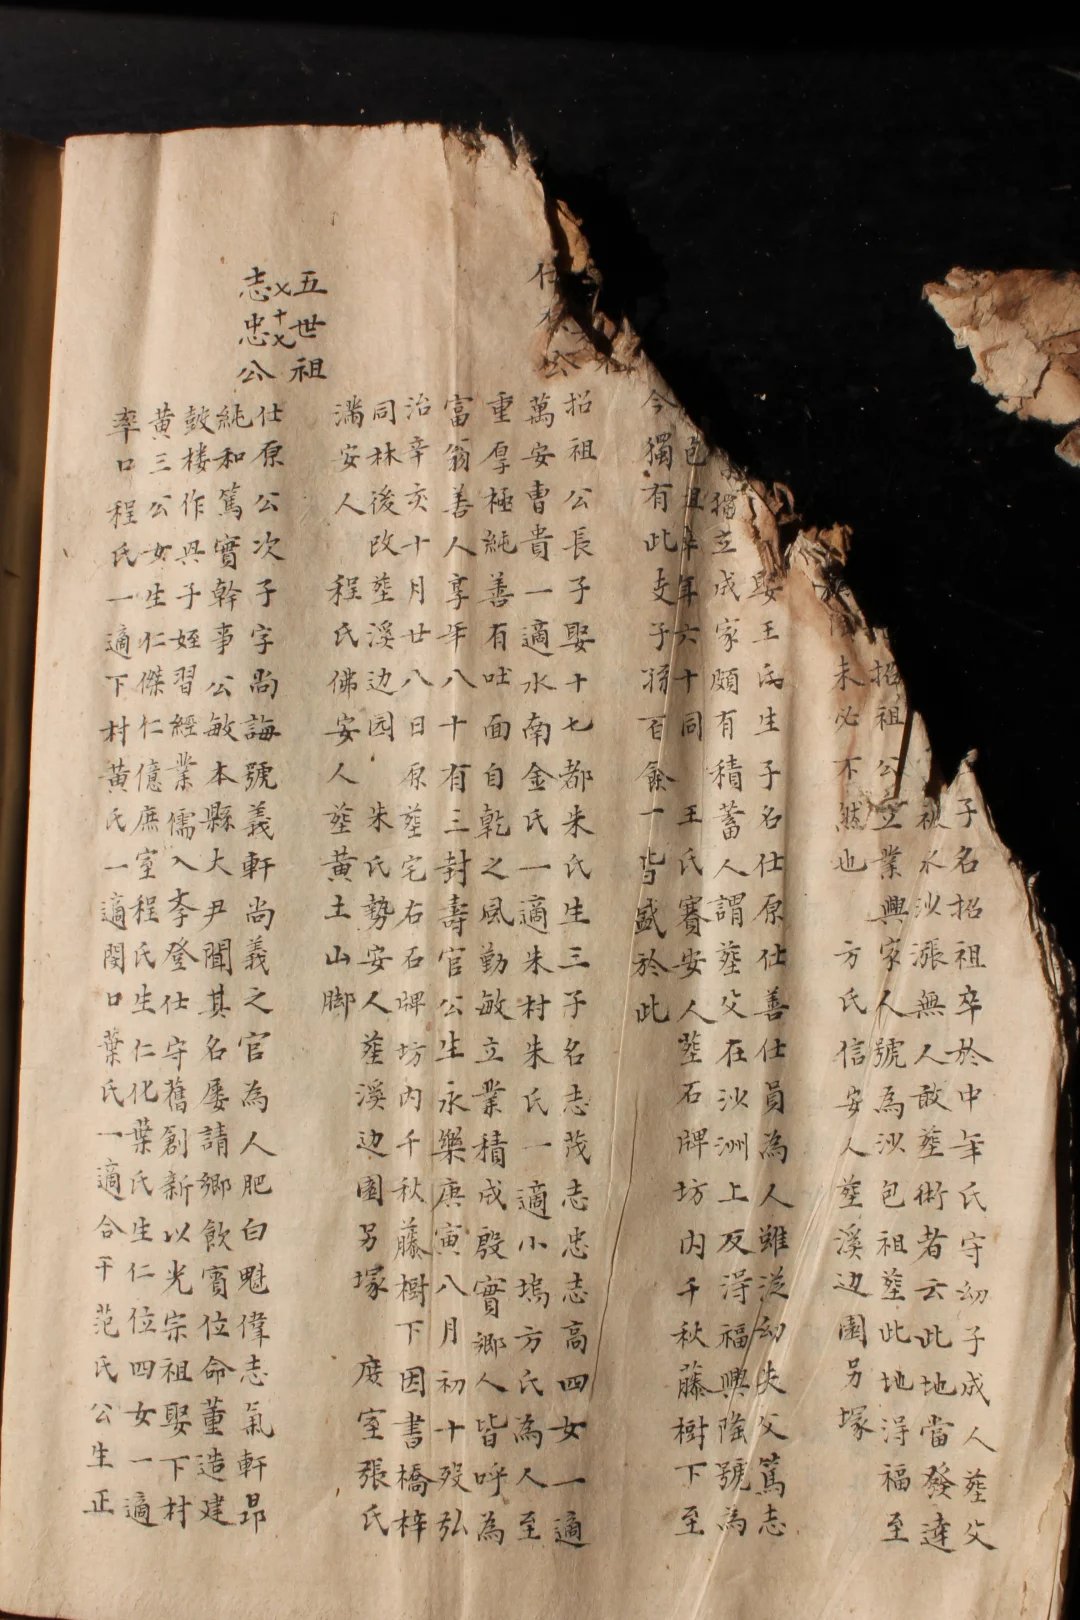 子名招祖卒於中年氏守幼子成人塟父
被水沙漲無人敢塟術者云此地當發達
招祖公立業興家人號為沙包祖塟此地淂福至
未必不然也　方氏信安人塟溪边園另塚
娶王氏生子名仕原仕善仕員為人雖從幼失父篤志
獨立成家頗有積蓄人謂塟父在沙洲上反淂福興隆號為
包祖卒年六十同　王氏賽安人塟石牌坊内千秋藤樹下至
今獨有此支子孫百餘一皆盛於此
仕
公
招祖公長子娶十七都朱氏生三子名志茂志忠志高四女一適
萬安曹貴一適水南金氏一適朱村朱氏一適小塢方氏為人至
重厚極純善有吐面自乾之風勤敏立業積成殷實鄉人皆呼為
富翁善人享年八十有三封壽官公生永樂庚寅八月初十歿弘
治辛亥十月廿八日原塟宅右石牌坊内千秋藤樹下因書橋梓
同林後改塟溪边园　朱氏勢安人塟溪边園另塚　庻室張氏
滿安人　程氏佛安人塟黃土山脚
五世祖
乂十七
志忠公
仕原公次子字尚誨號義軒尚義之官為人肥白魁偉志氣軒昂
純和篤實幹事公敏本縣大尹聞其名屡請鄉飲賓位命董造建
鼓楼作興子姪習經業儒入庠登仕守舊創新以光宗祖娶下村
黃三公女生仁傑仁億庶室程氏生仁化葉氏生仁位四女一適
率口程氏一適下村黃氏一適閔口葉氏一適合干范氏公生正